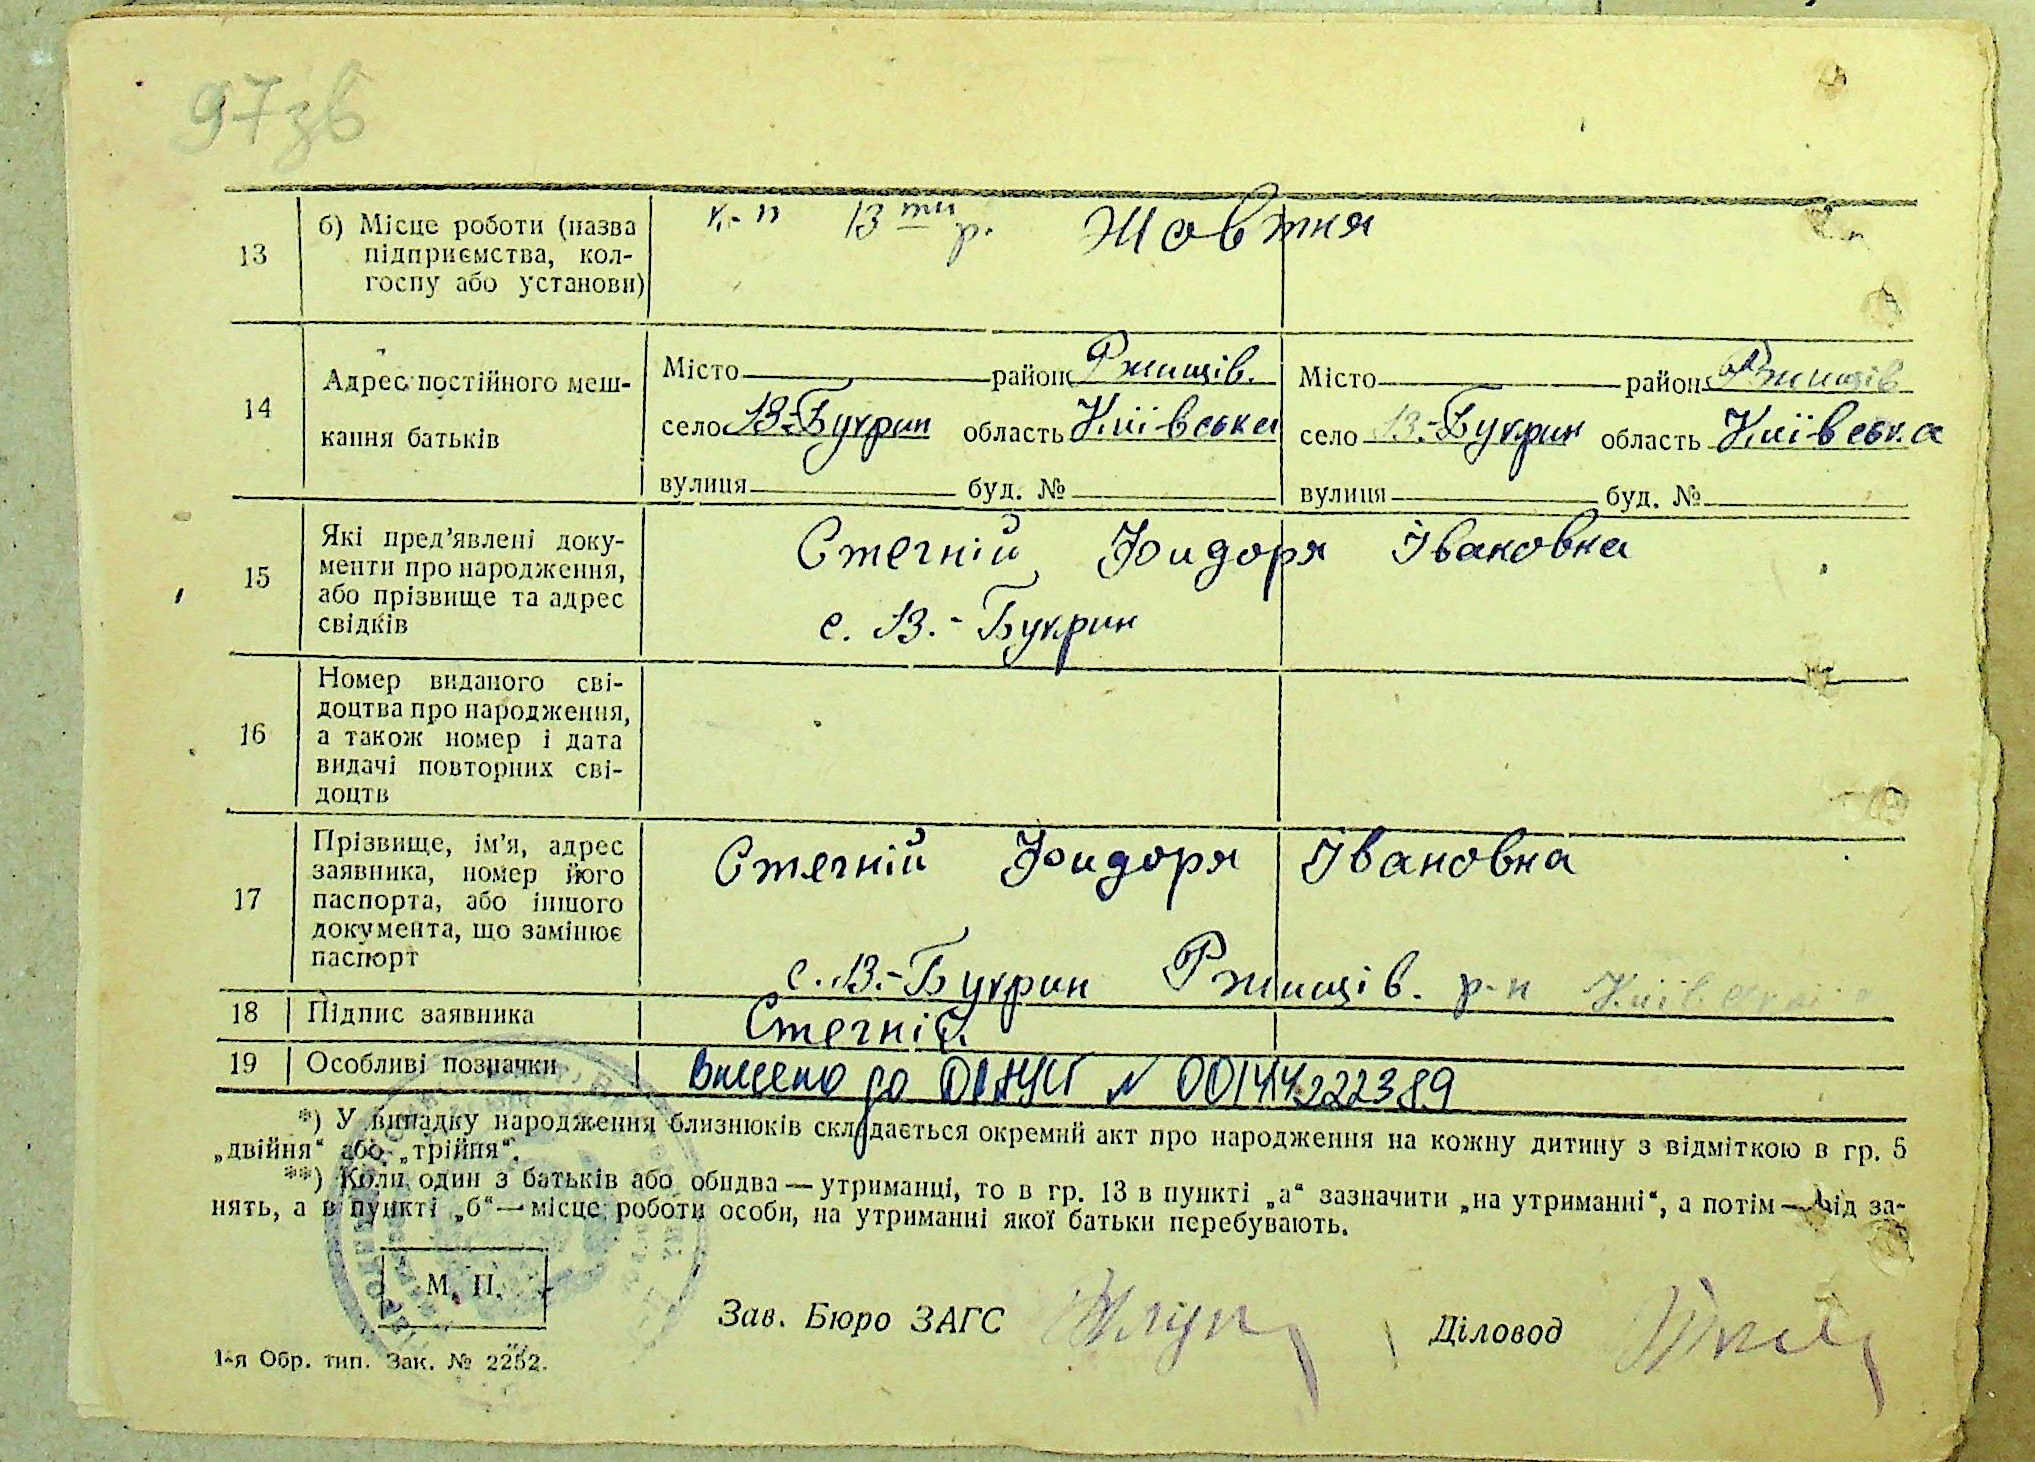 97зв
13 б) Місце роботи (назва підприємства, колгоспу або установи) к-п 13ти р. Жовтня
14 Адрес постійного мешкання батьків
Місто район Ржищів. Місто район Ржищів
село В-Букрин область Київська село В.-Букрин область Київська
вулиця буд. № вулиця буд. №
15 Які пред'явлені документи про народження, або прізвище та адрес свідків
Стегній Юидоря Івановна
с. В.-Букрин
16 Номер виданого свідоцтва про народження, а також номер і дата видачі повторних свідоцтв
17 Прізвище, ім'я, адрес заявника, номер його паспорта, або іншого документа, що замінює паспорт
Стегній Юидоря Івановна
с. В.-Букрин Ржищів. р-н
18 Підпис заявника Стегній
19 Особливі позначки Внесено до ДРАЦСГ № 00144222389
*) У випадку народження близнюків складається окремий акт про народження на кожну дитину з відміткою в гр. 5
„двійня“ або „трійня“.
**) Коли один з батьків або обидва — утриманці, то в гр. 13 в пункті „а“ зазначити „на утриманні“, а потім — від за-
нять, а в пункті „б“ — місце роботи особи, на утриманні якої батьки перебувають.
М. П.
Зав. Бюро ЗАГС Діловод
1-я Обр. тип. Зак. № 2252.